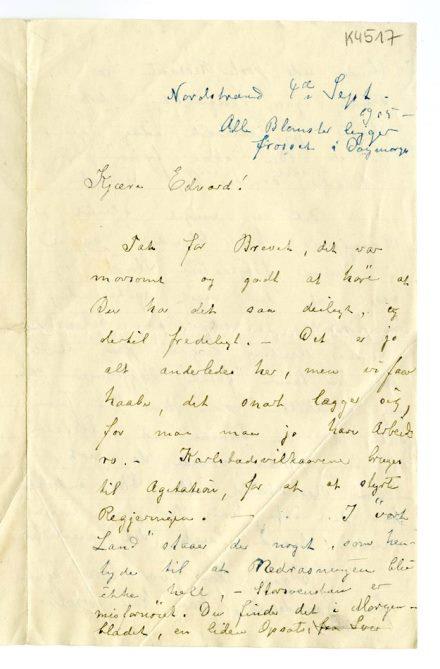 K4517
Nordstrand 4de Sept.
1905 –
Alle Blomster ligger
frosset i Dagmorges
Kjære Edvard!
Tak for Brevet, det var
morsomt og godt at høre at
Du har det saa deiligt, og
dertil fredeligt. – Det er jo
alt anderledes her, men vi faar
haabe, det snart lægger sig,
for man maa jo have Arbeids
ro. – Karlstadsvilkaarene bruges
til Agitation, for at styrte
Regjeringen. – I "vort
Land" staaer der noget, som hen-
tyder til at
ikke helt, – er
misfornøiet. Du finder det i Morgen-
bladet, en liden Opsats,